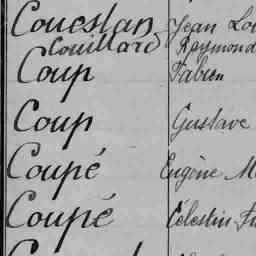 Coueslan Jean Lou
Couillard Raymond
Coup Fabien
Coup Gustave
Coupé Eugène M
Coupé Célestin